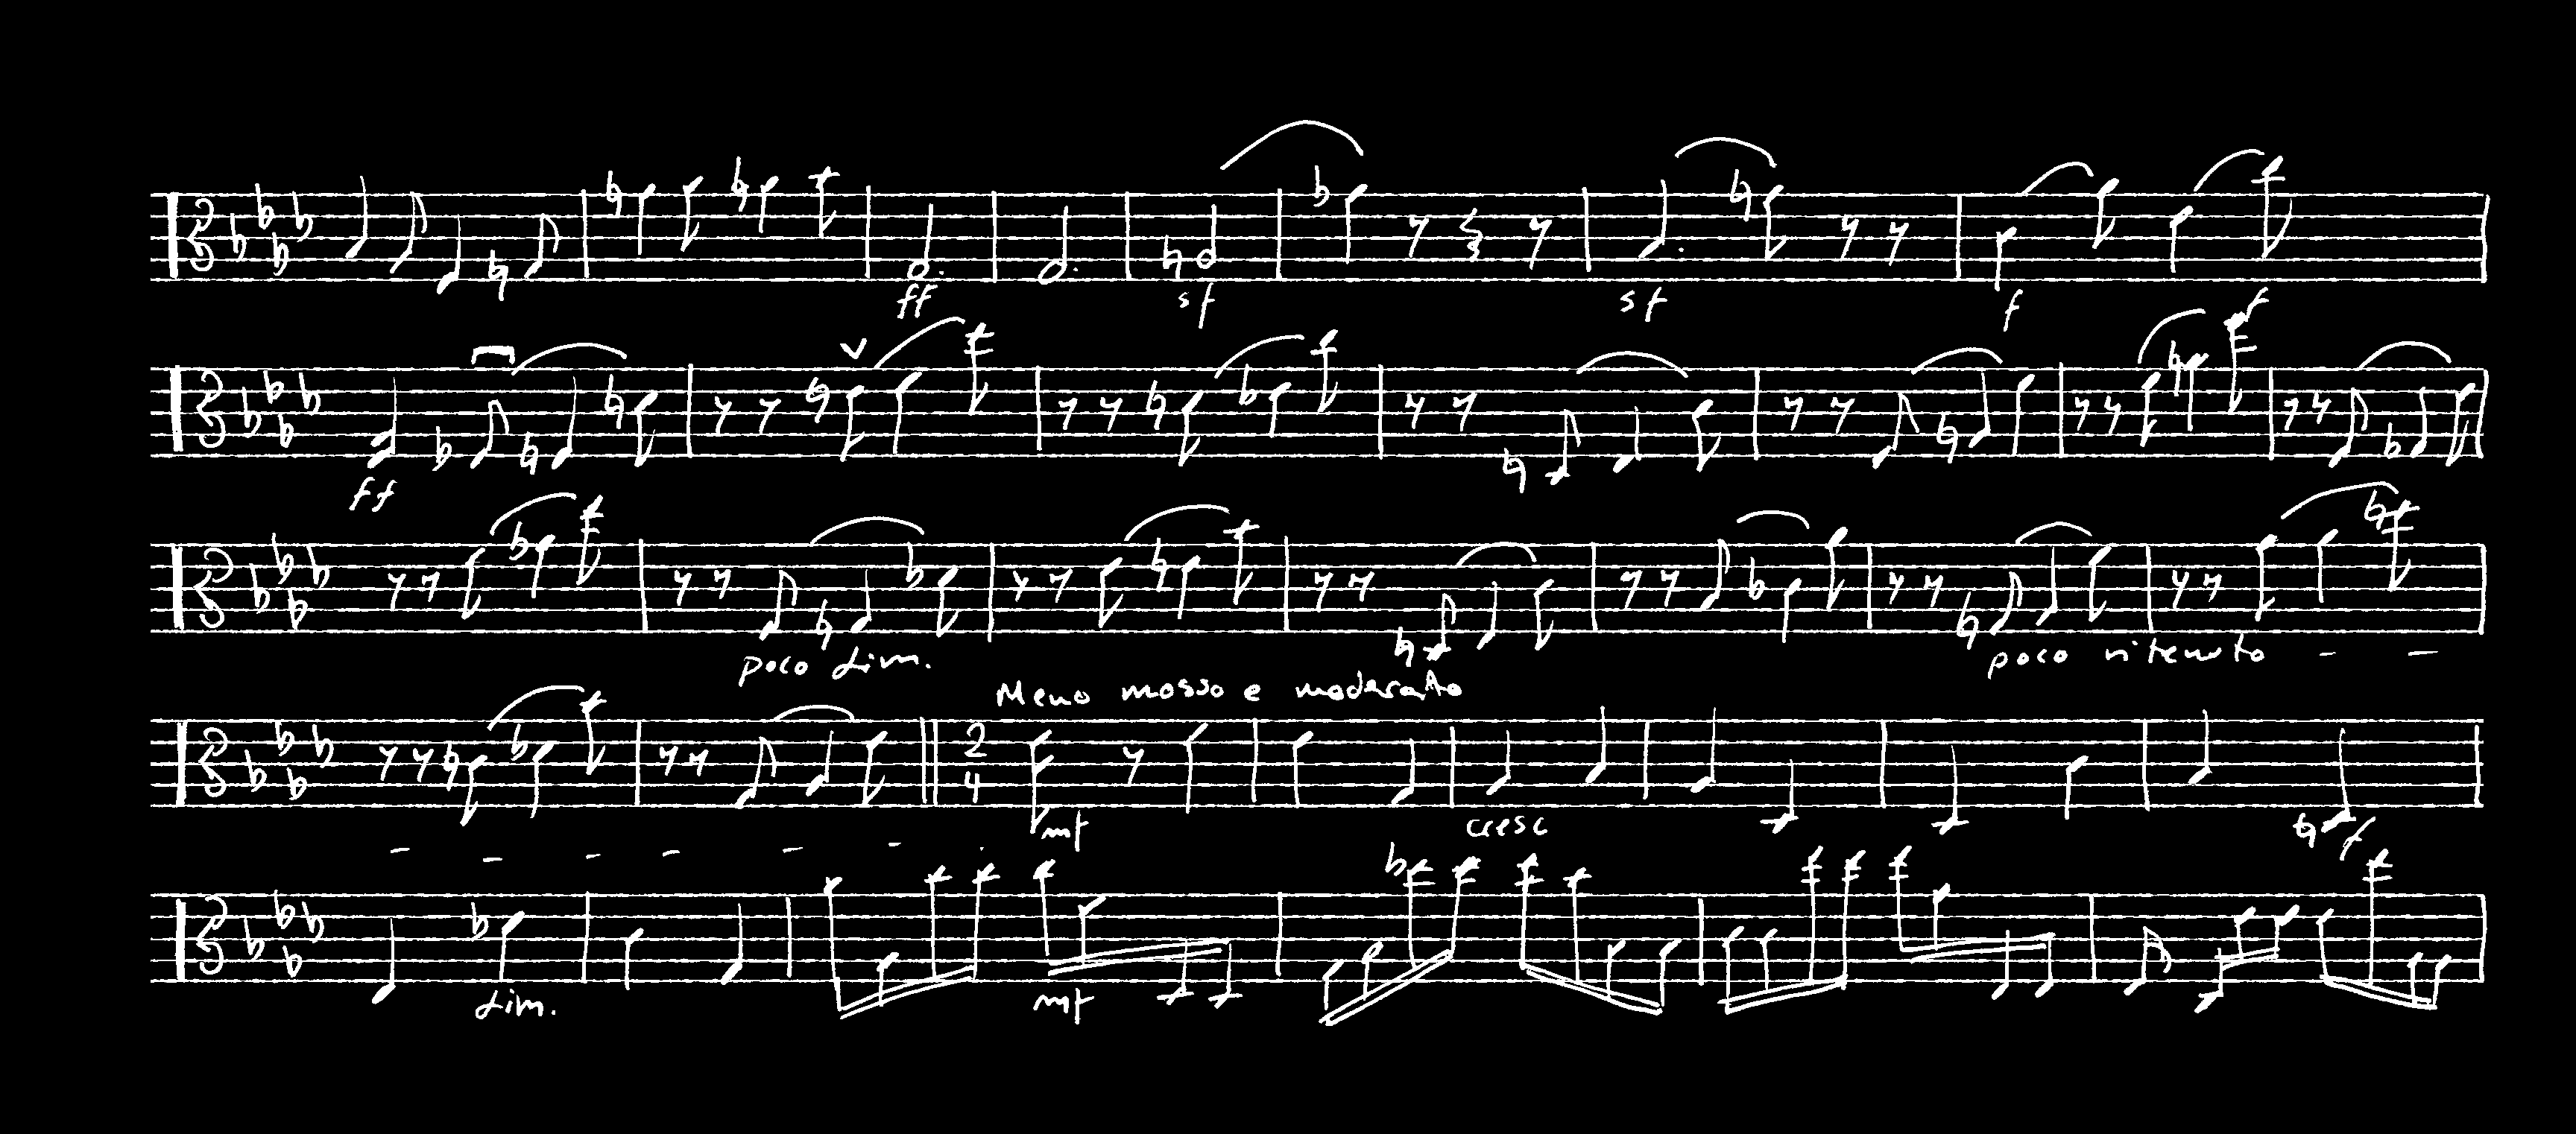 ff sf sf f f
ff
poco dim. poco ritenuto - -
Meno mosso e moderato
- - - - - - .
2
4
mf cresc f
dim. mf